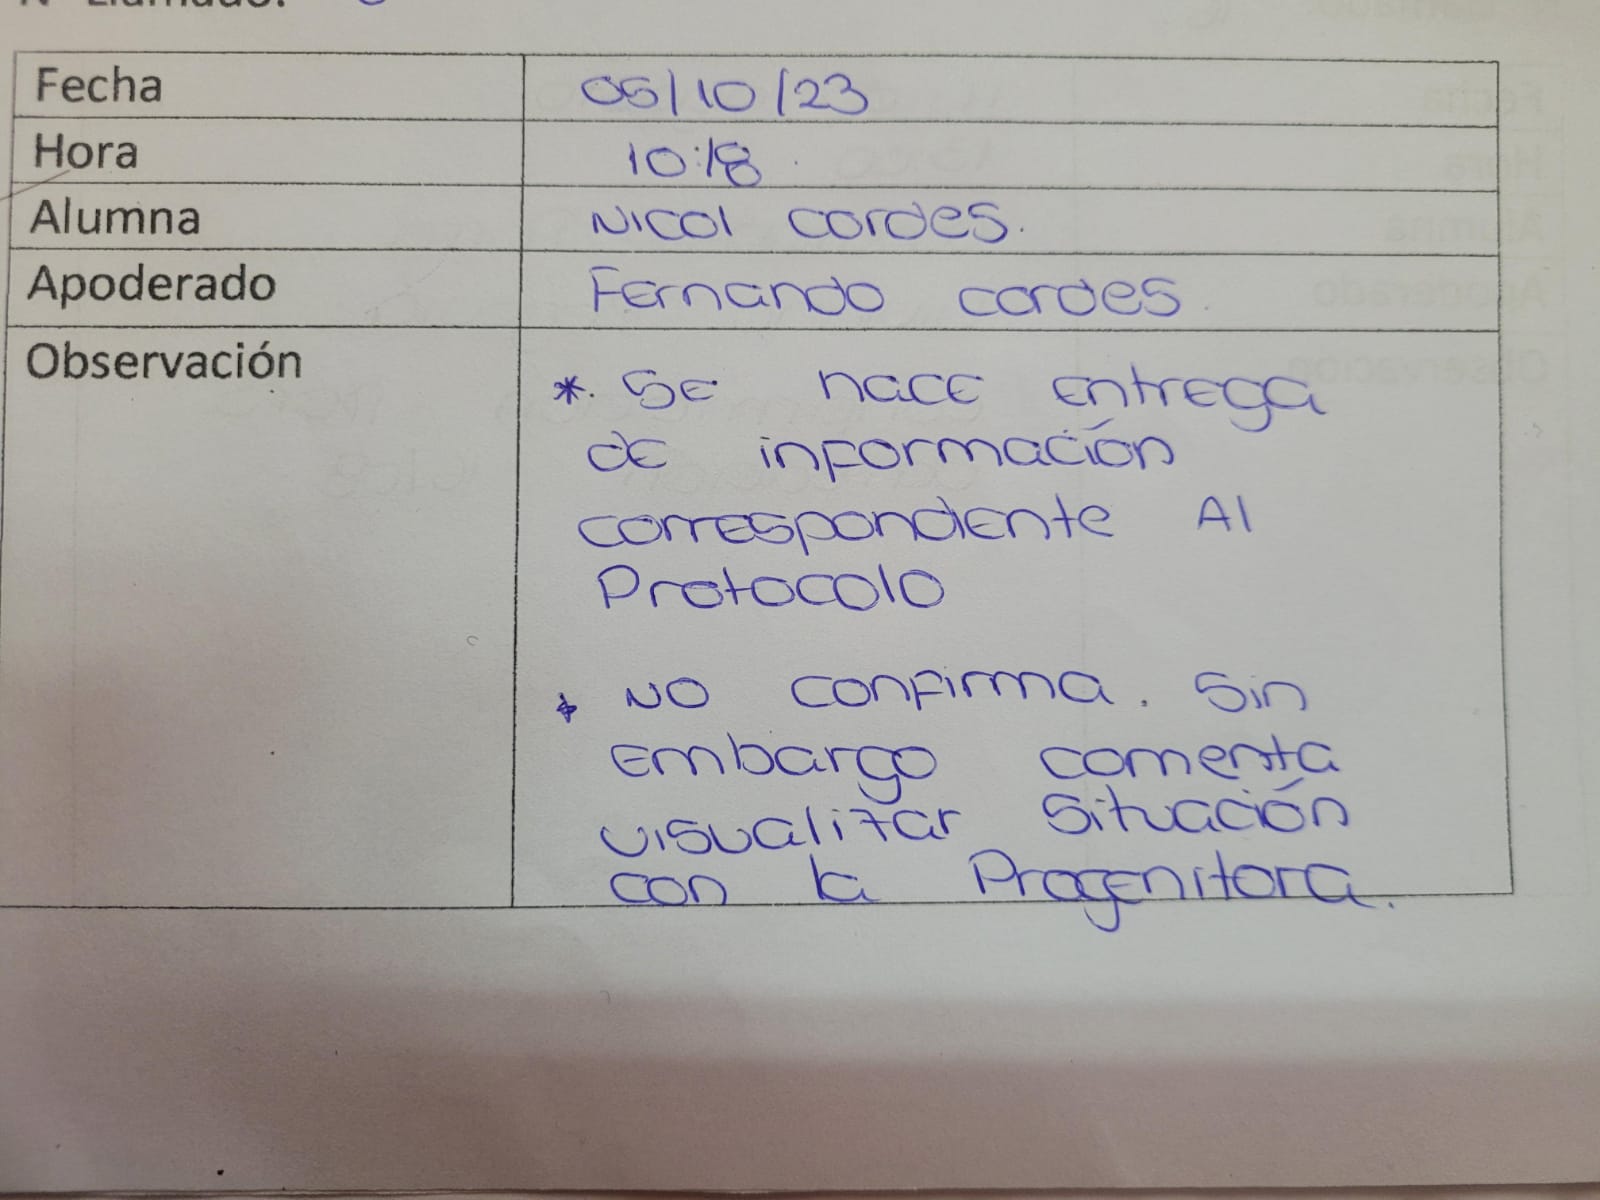 N° Llamado:
Fecha 05/10/23
Hora 10:18
Alumna Nicol Cordes.
Apoderado Fernando Cordes.
Observación
*. Se hace entrega
de información
correspondiente Al
Protocolo
* No confirma. Sin
embargo comenta
visualizar situación
con la Progenitora.